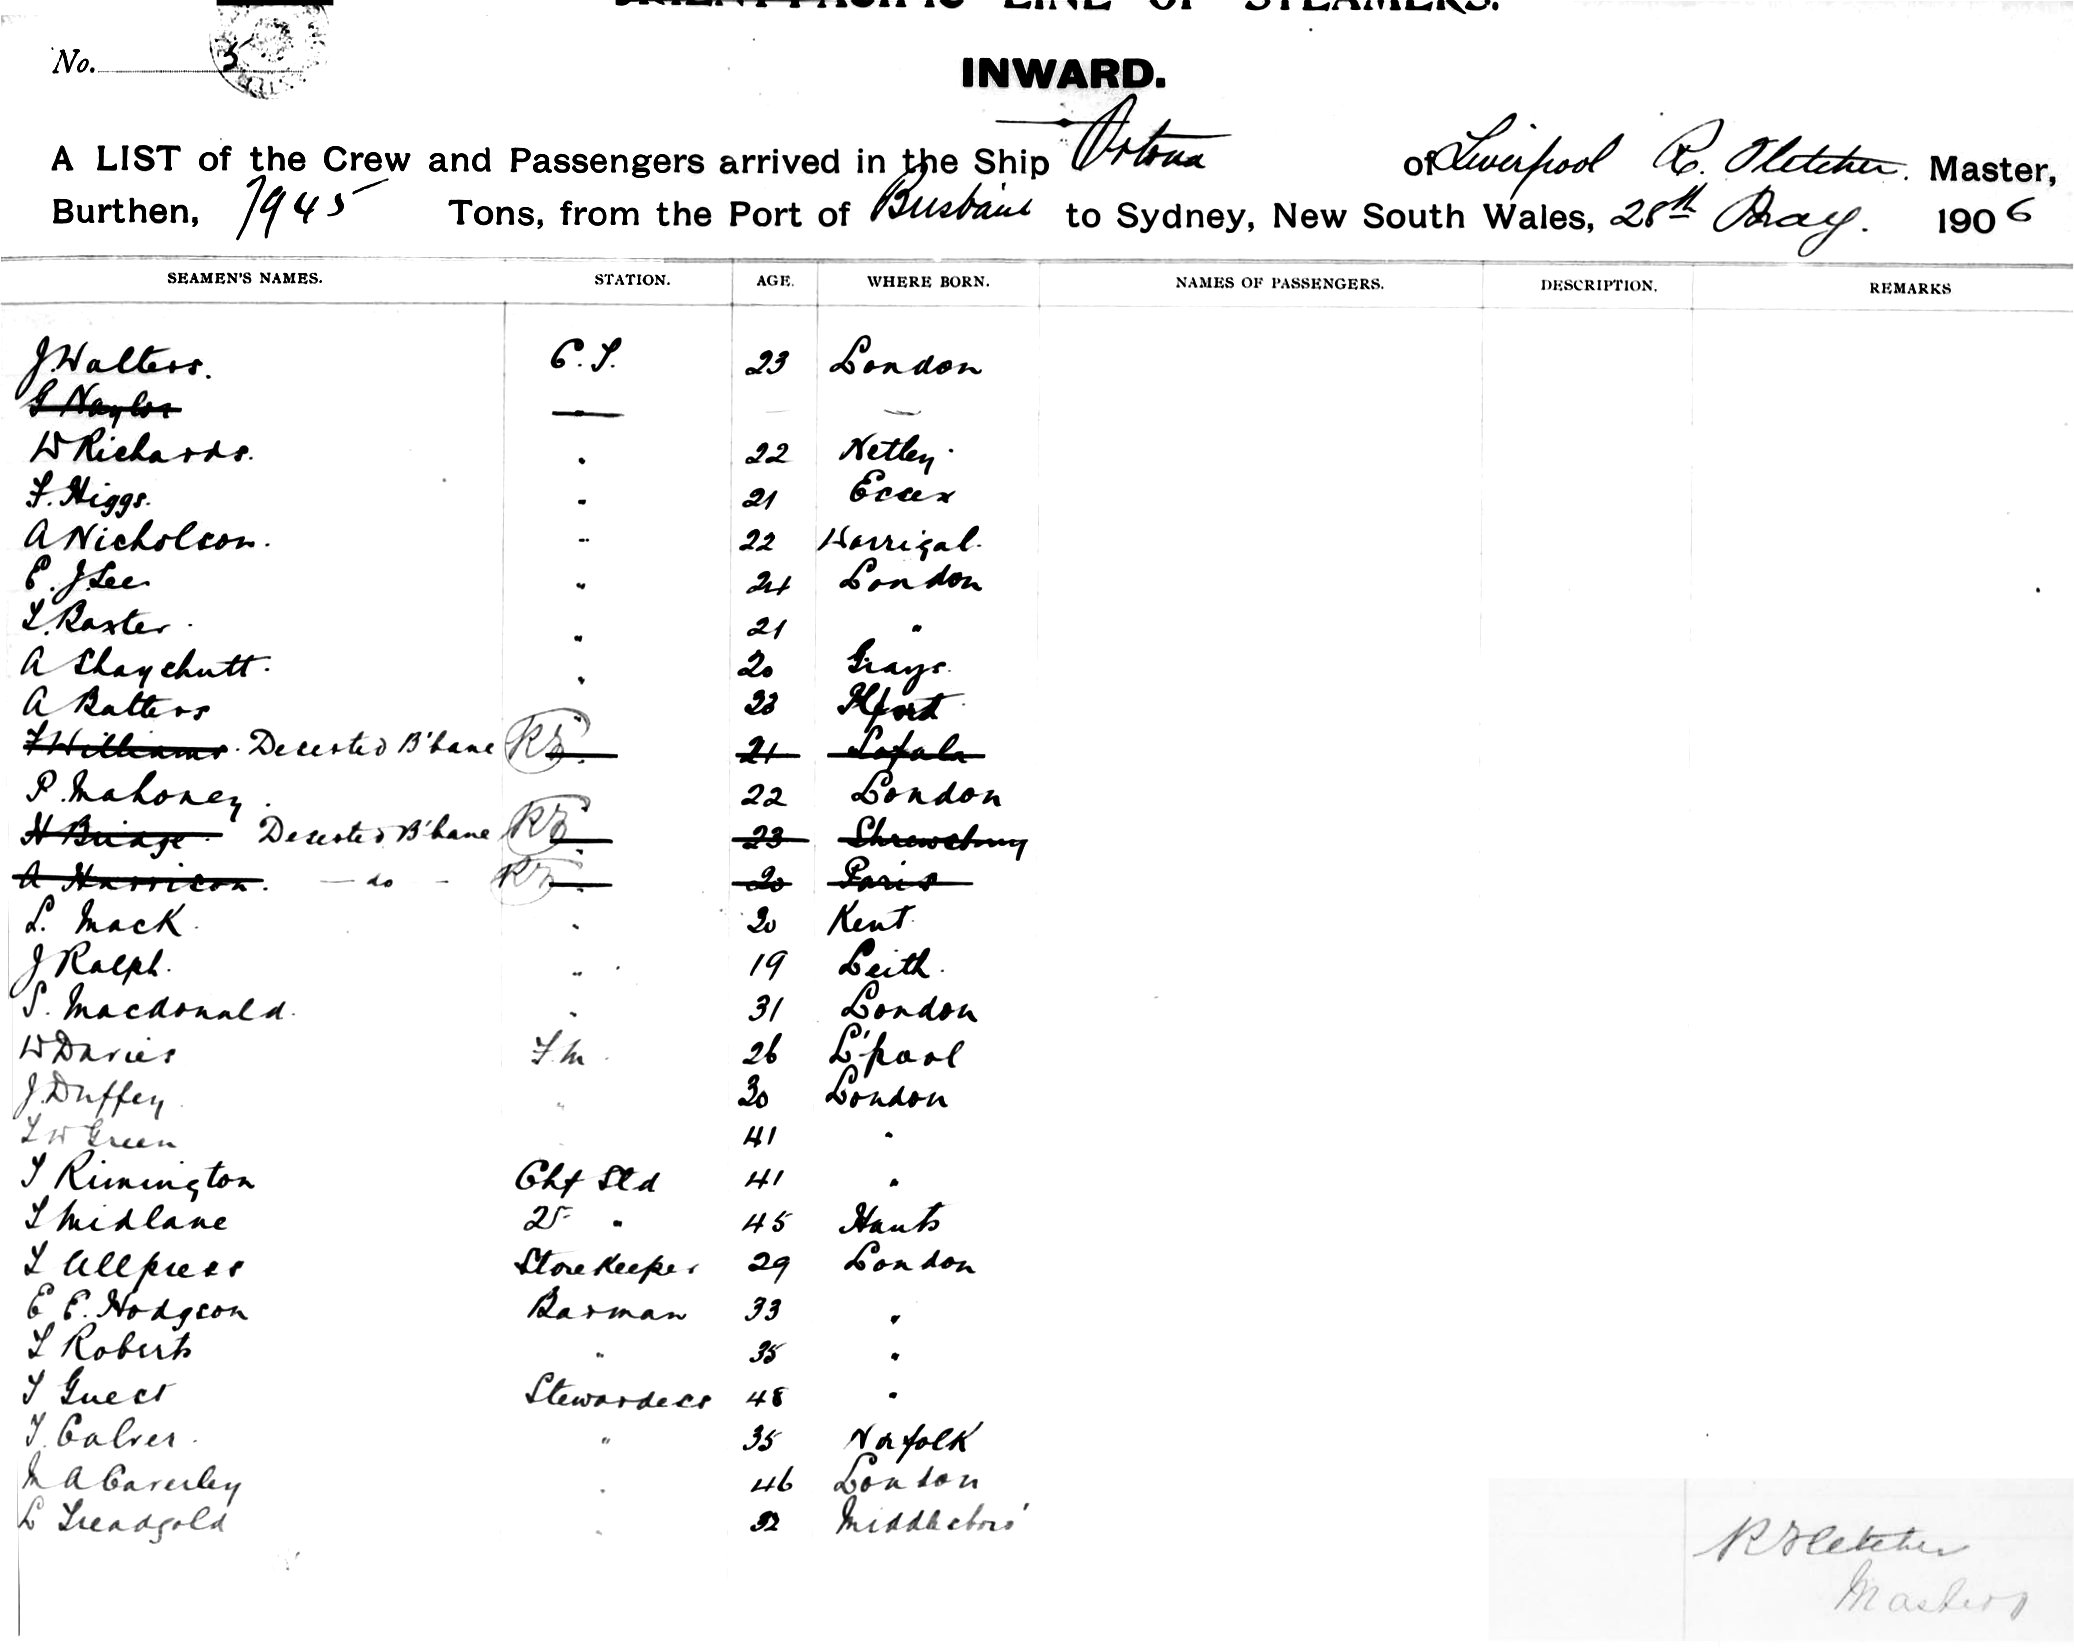 ORIENT-PACIFIC LINE OF STEAMERS.
No. 5
INWARD.
A LIST of the Crew and Passengers arrived in the Ship Ortona of Liverpool R. Fletcher. Master,
Burthen, 7945 Tons, from the Port of Brisbane to Sydney, New South Wales, 28th May. 1906
SEAMEN'S NAMES. STATION. AGE. WHERE BORN. NAMES OF PASSENGERS. DESCRIPTION. REMARKS
J. Walters. 23 London
G Naylor —
W Richards. " 22 Netley
F. Higgs. " 21 Essex
A Nicholson. " 22 Warrigal
E. J. Lee " 24 London
L. Baxter " 21 "
A Shaychutt. " 20 Grays
A Batters " 23 Ilford
F Williams. Deserted B'bane RF " 21
P. Mahoney. " 22 London
H Bridge. Deserted B'bane RF " 23 Shrewsbury
A Harrison. — do — RF " 20 Paris
L. Mack " 20 Kent
J Ralph. " 19 Leith
S. Macdonald. " 31 London
W Davies F.M. 26 L'pool
J. Duffey " 30 London
W Green 41 "
Rimington Chf Std 41 "
Midlane 2nd " 45 Hants
Allpress Storekeeper 29 London
E E. Hodgson Barman 33 "
Roberts " 35 "
Guest Stewardess 48 "
Calver. " 35 Norfolk
M A Caverley " 46 London
L Treadgold " 32 Middlesboro'
R Fletcher
Master